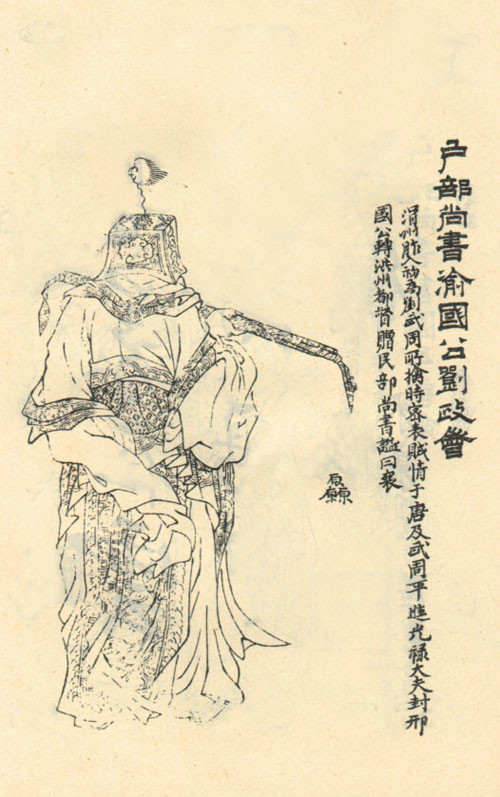 戶部尚書渝國公劉政會
滑州胙人初為劉武周所擒時密表賊情于唐及武周平進光祿大夫封邢
國公轉洪州都督贈民部尚書謚曰襄